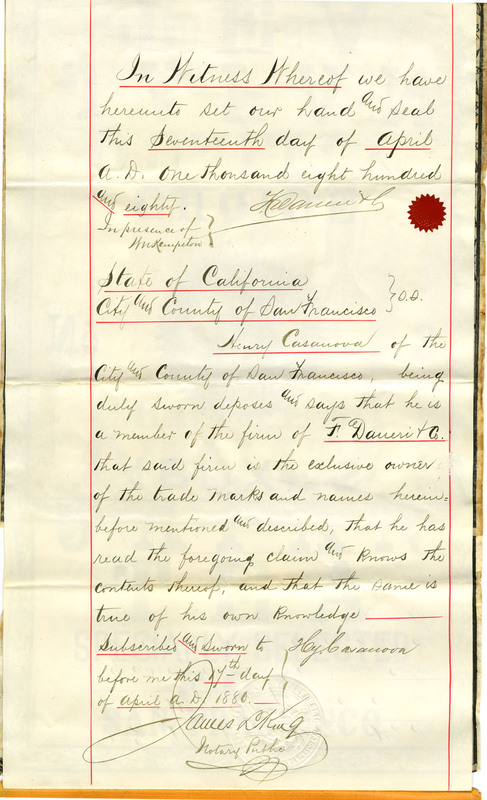 In Witness Whereof we have
hereunto set our hand and seal
this Seventeenth day of April
A.D. one thousand eight hundred
and eighty. F. Daneri & Co
In presence of
Wm Kempton
State of California
City and County of San Francisco } S.S.
Henry Casanova of the
City and County of San Francisco, being
duly sworn deposes and says that he is
a member of the firm of F. Daneri & Co.
that said firm is the exclusive owner
of the trade marks and names herein=
before mentioned and described, that he has
read the foregoing claim and knows the
contents thereof, and that the same is
true of his own knowledge
Subscribed and Sworn to } Hy. Casanova
before me this 17th day
of April A.D. 1880.
James L King
Notary Public